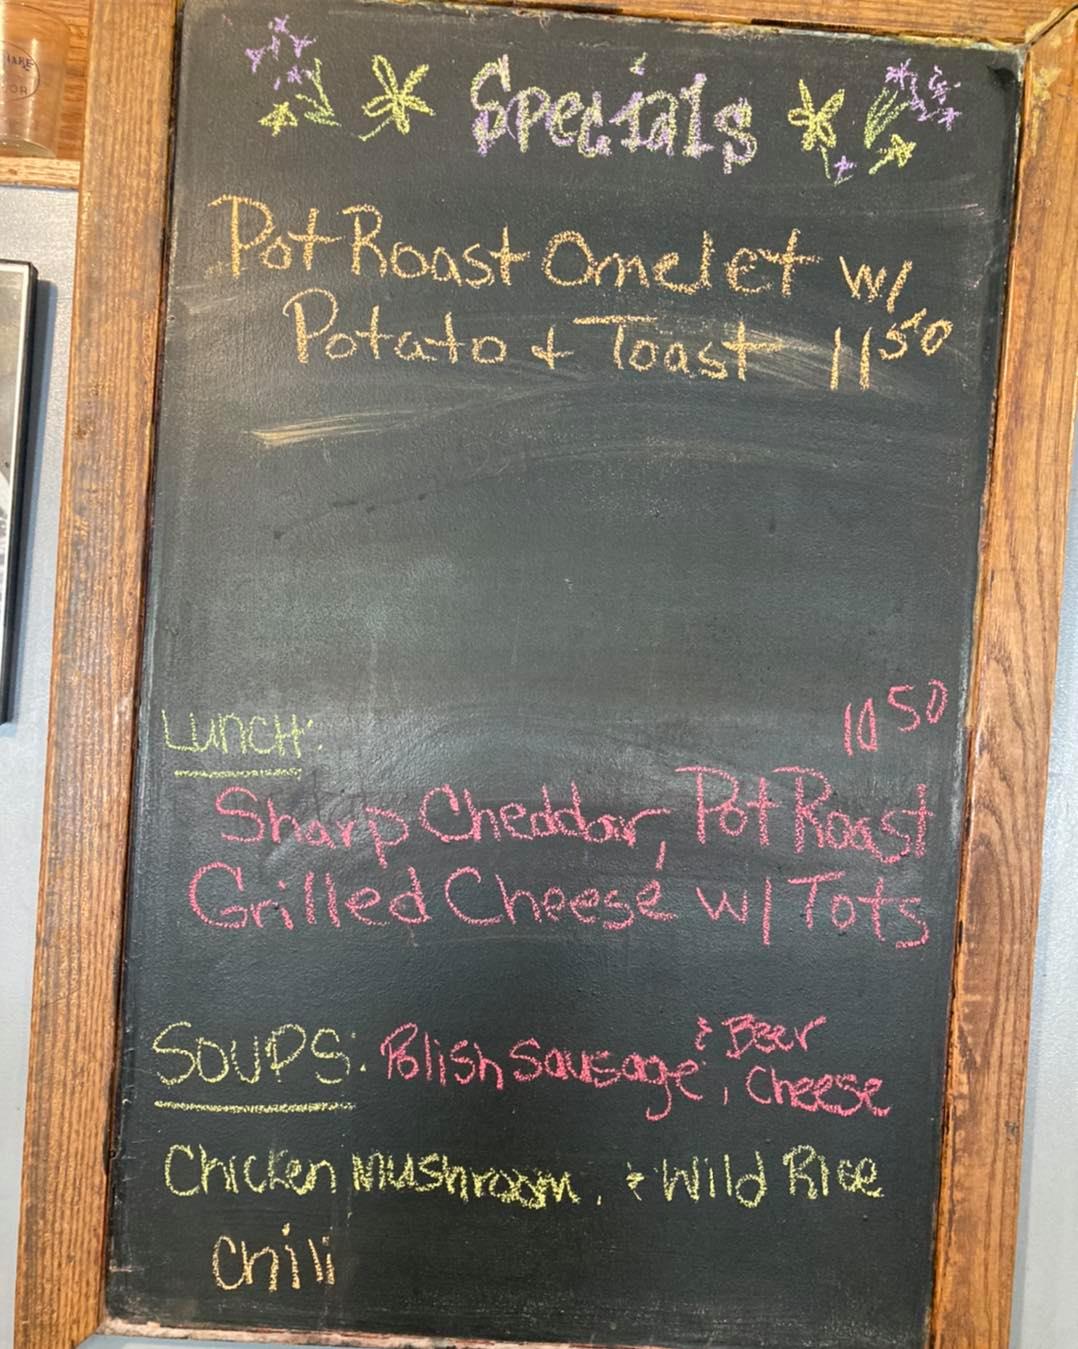 Specials
Pot Roast Omelet w/
Potato + Toast 11 50
LUNCH: 10 50
Sharp Cheddar, Pot Roast
Grilled Cheese w/ Tots
SOUPS: Polish Sausage, & Beer Cheese
Chicken Mushroom, & Wild Rice
Chili